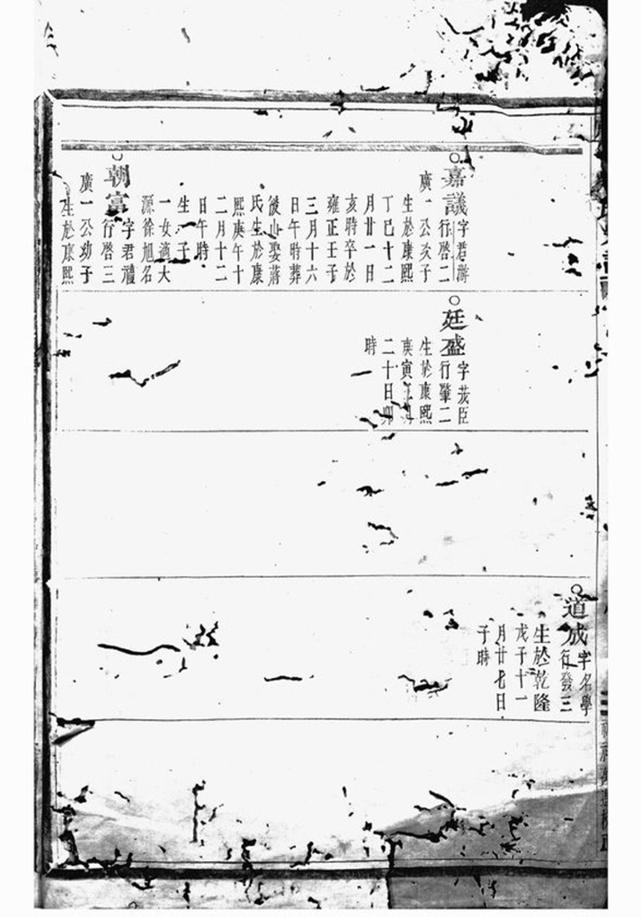 嘉議
字君
行啓二
廣一公次子
生於康熙
丁巳十二
月廿一日
亥時卒於
雍正壬子
三月十六
日午時葬
後山娶蔣
氏生於康
熙庚午十
二月十二
日午時
生一子
一女適大
源徐旭名
朝富
字君禮
行啓三
廣一公幼子
生於康熙
廷盛
字茂臣
行肇二
生於康熙
庚寅
二十日卯
時
道成
字名學
行發三
生於乾隆
戊子十一
月廿七日
子時